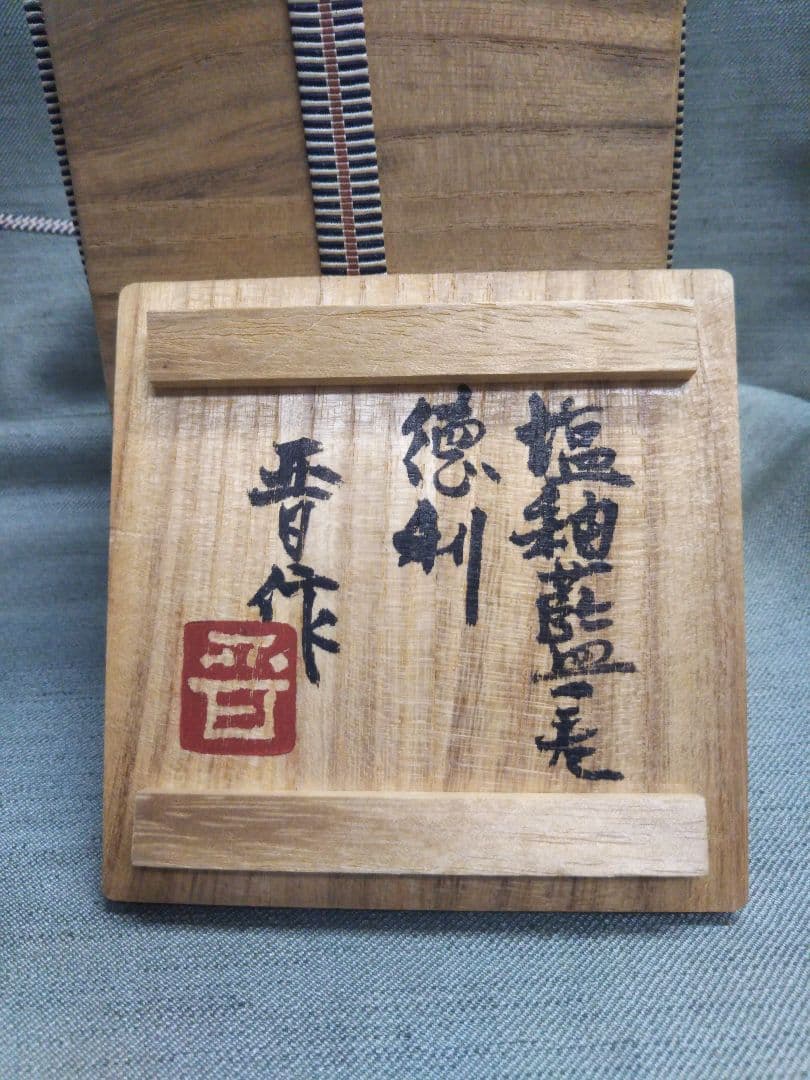 塩釉藍巻
徳利
晋作
晋